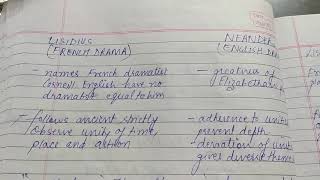 LISIDIUS
(FRENCH DRAMA)
- names French dramatist
(cornel) English have no
dramatist equal to him
- follows ancient strictly
Observe unity of time,
place and action
NEANDER
(ENGLISH DR
- greatness of
Elizabethan
- adherence to unit
prevent depth
- deviation of unit
gives diverse themes